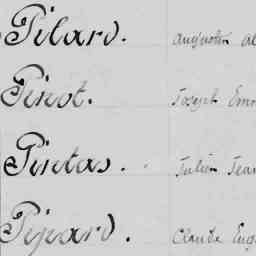 Pilard. Augustin Al
Pinot. Joseph Emm
Pintas. Julien Jean
Pipard. Claude Eug